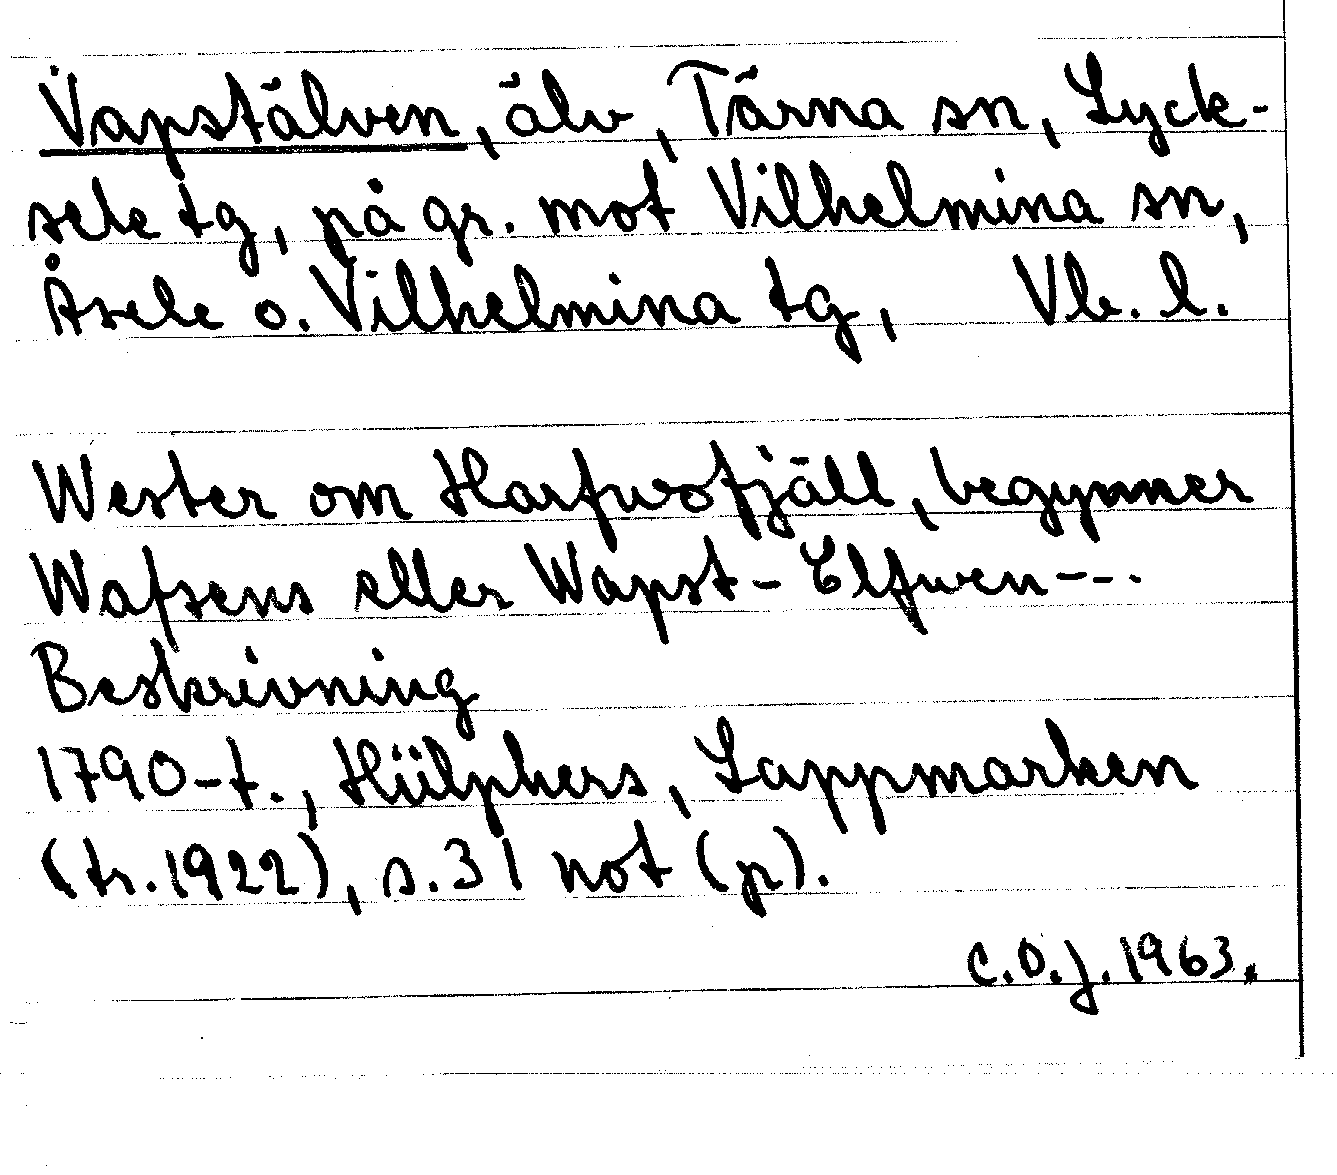 Vapstälven, älv, Tärna sn, Lyck-
sele tg, på gr. mot Vilhelmina sn,
Åsele o. Vilhelmina tg, Vb. l.
Wester om Harfwofjäll, begynner
Wafsens eller Wapst-Elfwen---
Beskrivning
1790-t., Hülphers, Lappmarken
(tr. 1922), s. 31 not (p).
C.O.J. 1963.